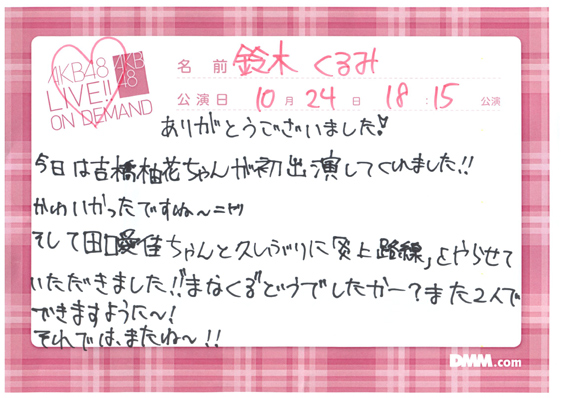 AKB48
LIVE!!
ON DEMAND
AKB
48
名前 鈴木 くるみ
公演日 10月24日 18:15 公演
ありがとうございました
今日は吉橋柚花ちゃんが初出演してくれました!!
かわいかったですね〜
そして田口愛佳ちゃんと久しぶりに「炎上路線」をやらせて
いただきました!!"まなくる"どうでしたかー?また2人で
できますように〜!
それでは、またね〜!!
DMM.com